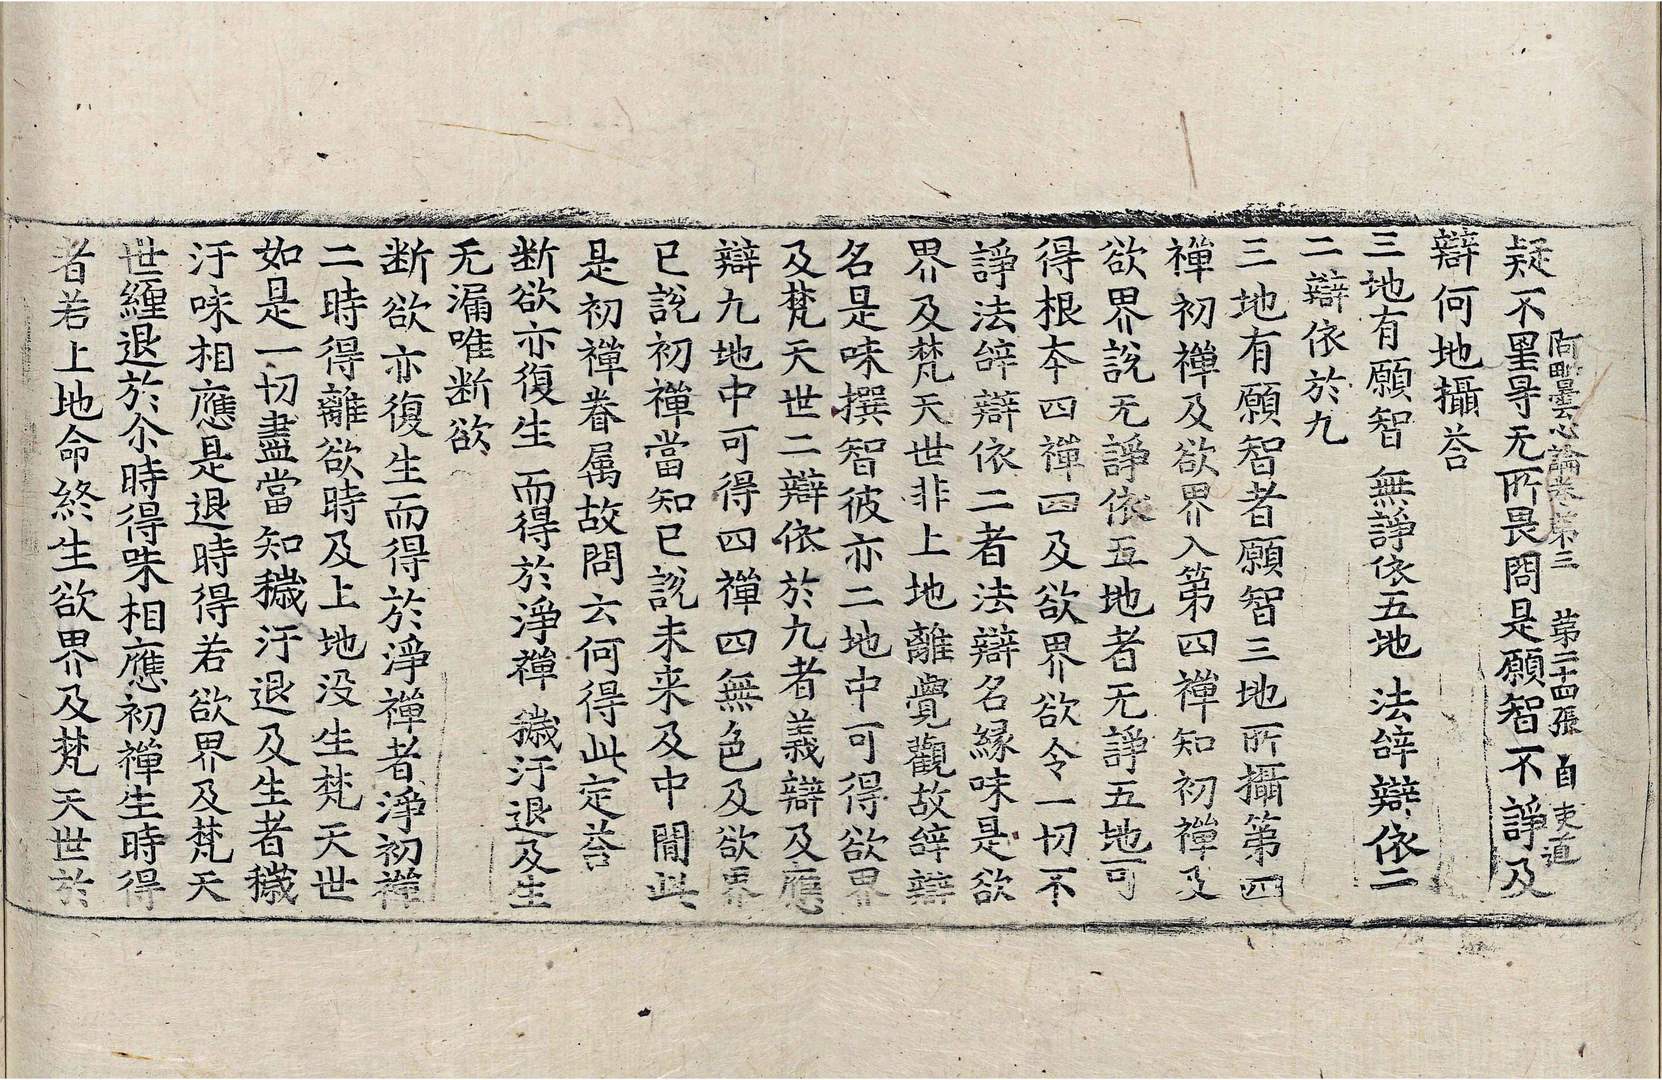 阿毗曇心論卷第三　第二十四張　自吏道
疑不罣㝵无所畏問是願智不諍及
辯何地攝荅
三地有願智　無諍依五地　法辝辯依二
二辯依於九
三地有願智者願智三地所攝第四
禪初禪及欲界入第四禪知初禪及
欲界說无諍依五地者无諍五地可
得根夲四禪四及欲界欲令一切不
諍法辝辯依二者法辯名緣味是欲
界及梵天世非上地離覺觀故辝辯
名是味撰智彼亦二地中可得欲界
及梵天世二辯依於九者義辯及應
辯九地中可得四禪四無色及欲界
已說初禪當知已說未来及中閒此
是初禪眷属故問云何得此定荅
断欲亦復生　而得於淨禪　穢汙退及生
无漏唯断欲
断欲亦復生而得於淨禪者淨初禪
二時得離欲時及上地没生梵天世
如是一切盡當知穢汙退及生者穢
汙味相應是退時得若欲界及梵天
世纏退於尒時得味相應初禪生時得
者若上地命終生欲界及梵天世於